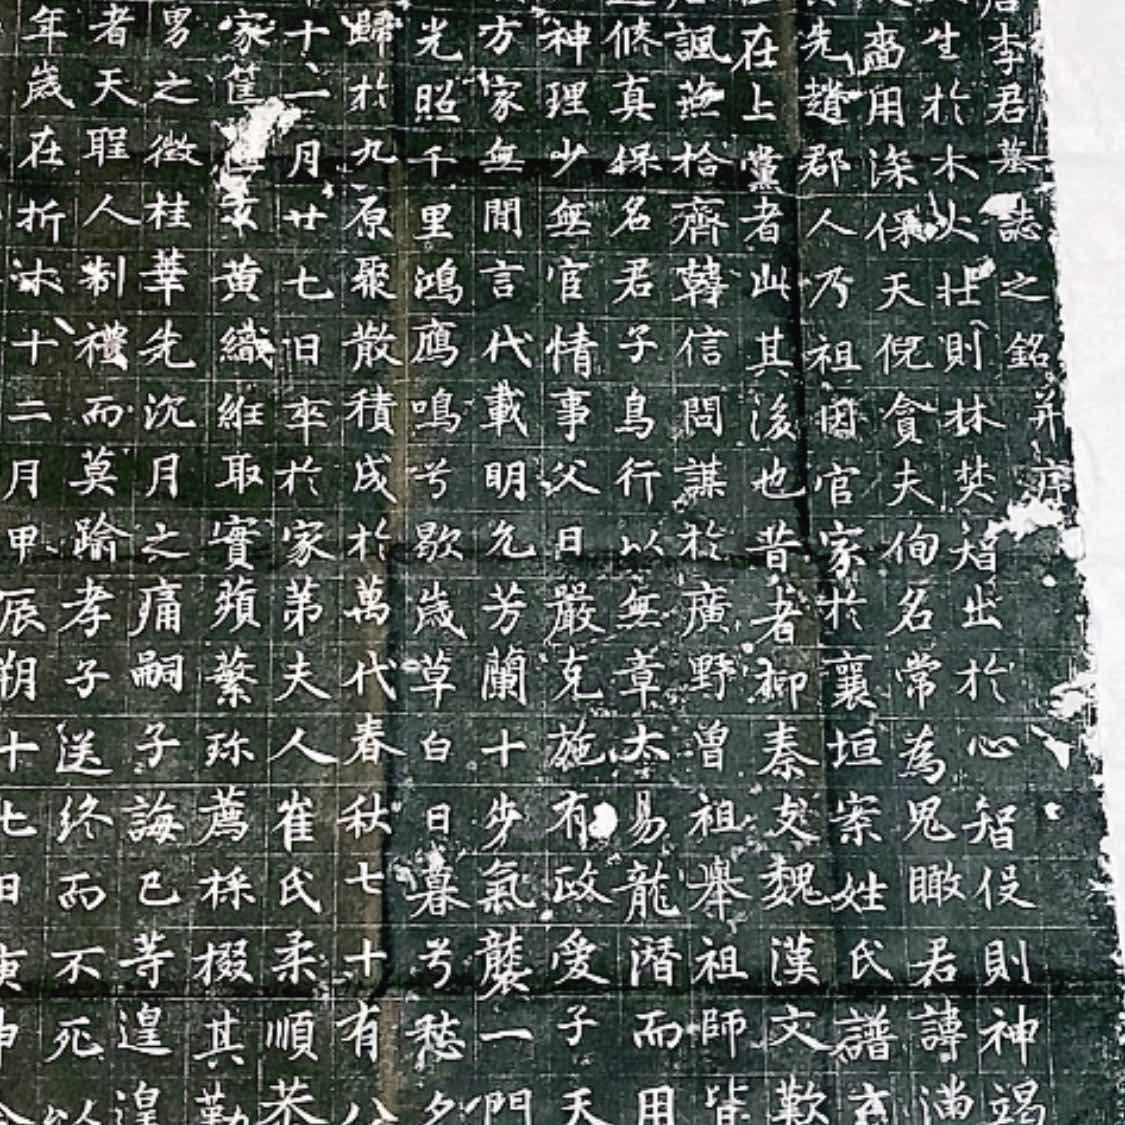 李君墓誌之銘并序
生於木火壯則林焚智出於心智役則神竭
用深保天倪貪夫徇名常為鬼瞰君諱滿
先趙郡人乃祖因官家於襄垣案姓氏譜云
在上黨者此其後也昔者柳秦父魏漢文歎
諷燕拾齊韓信問謀於廣野曾祖舉祖師皆
脩真保名君子鳥行以無章大易龍潛而用
神理少無官情事父日嚴克施有政愛子天
方家無間言代載明允芳蘭十步氣襲一門
光照千里鴻鷹鳴兮歇歲草白日暮兮愁夕
歸於九原聚散積成於萬代春秋七十有八
十二月廿七日卒於家第夫人崔氏柔順恭
家筐玄黃織絍取實蘋蘩珎薦採掇其勤
男之徵桂華先沉月之痛嗣子誨己等遑遑
者天聖人制禮而莫踰孝子送終而不死以
年歲在折木十二月甲辰朔十七日庚申